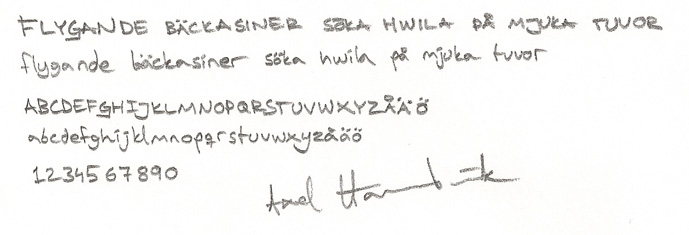 FLYGANDE BÄCKASINER SÖKA HWILA PÅ MJUKA TUVOR
flygande bäckasiner söka hwila på mjuka tuvor
ABCDEFGHIJKLMNOPQRSTUVWXYZÅÄÖ
abcdefghijklmnopqrstuvwxyzåäö
1234567890
Axel